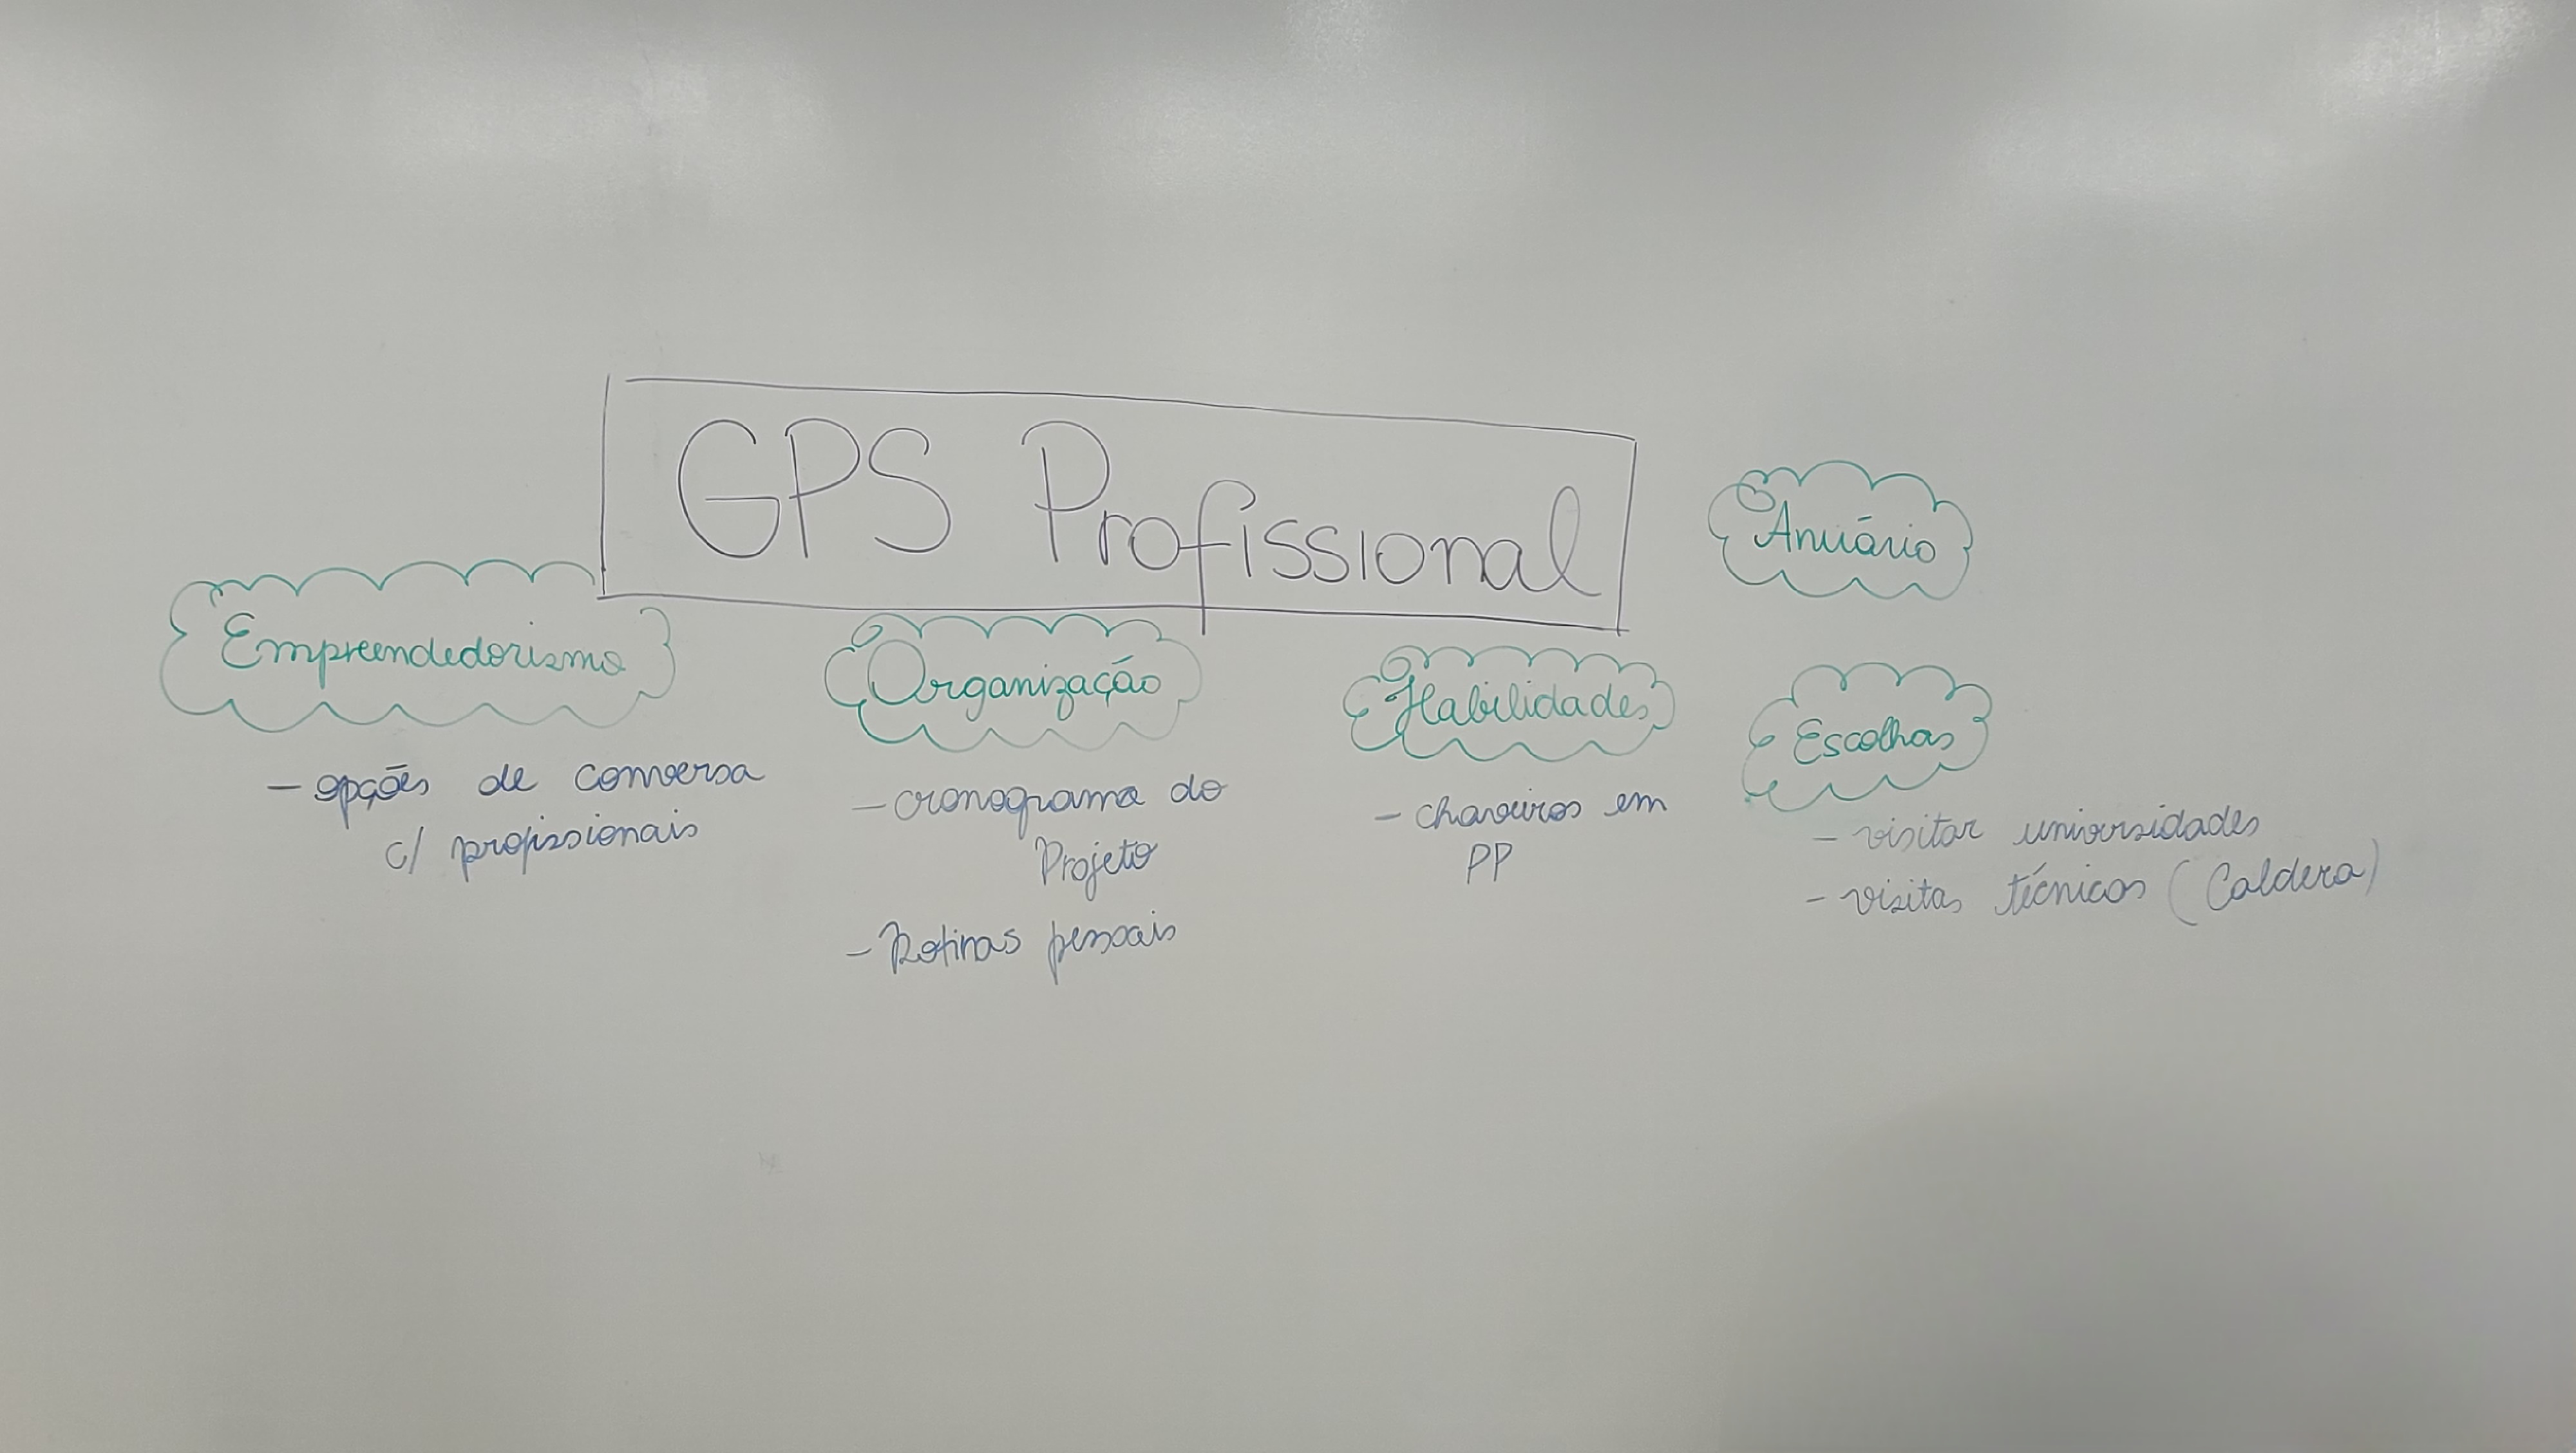 GPS Profissional
Anuário
Empreendedorismo
- opções de conversa
c/ profissionais
Organização
- cronograma do
Projeto
- Rotinas pessoais
Habilidades
- chaveiros em
PP
Escolhas
- visitar universidades
- visitas técnicas (Caldera)